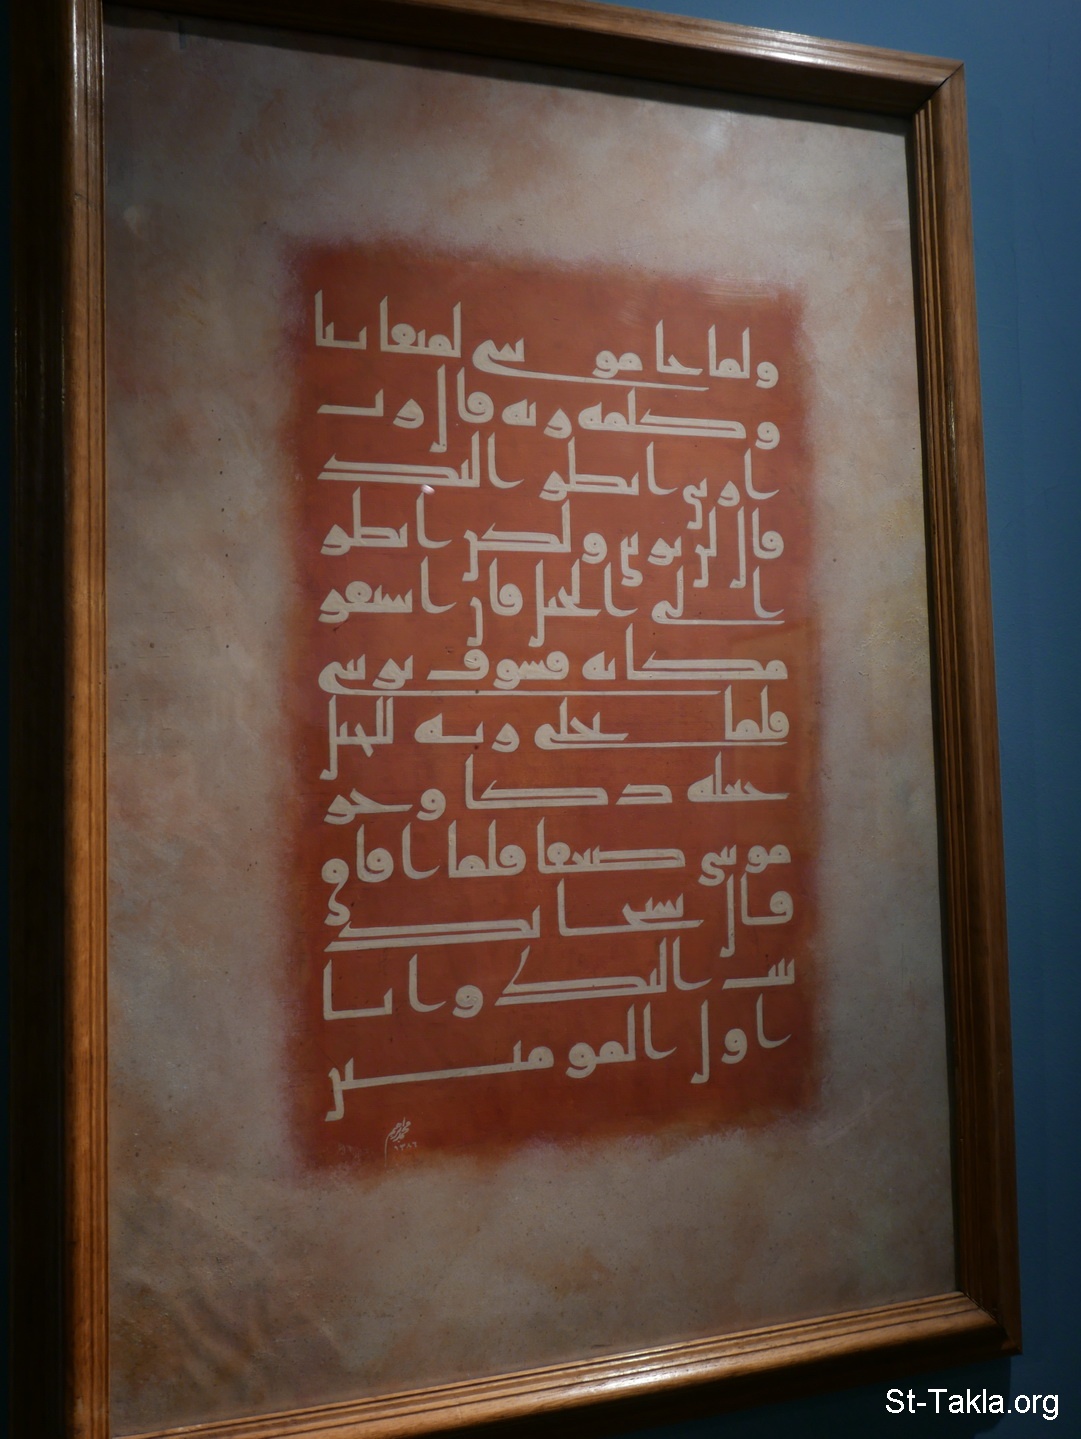 ولما جا موسى لميقاتنا
وكلمه ربه قال رب
ارني انظر اليك
قال لن تريني ولكن انظر
الى الجبل فان استقر
مكانه فسوف تريني
فلما تجلى ربه للجبل
جعله دكا وخر
موسى صعقا فلما افاق
قال سبحانك
تبت اليك وانا
اول المومنين
محمد ابراهيم
١٣٨٦
St-Takla.org